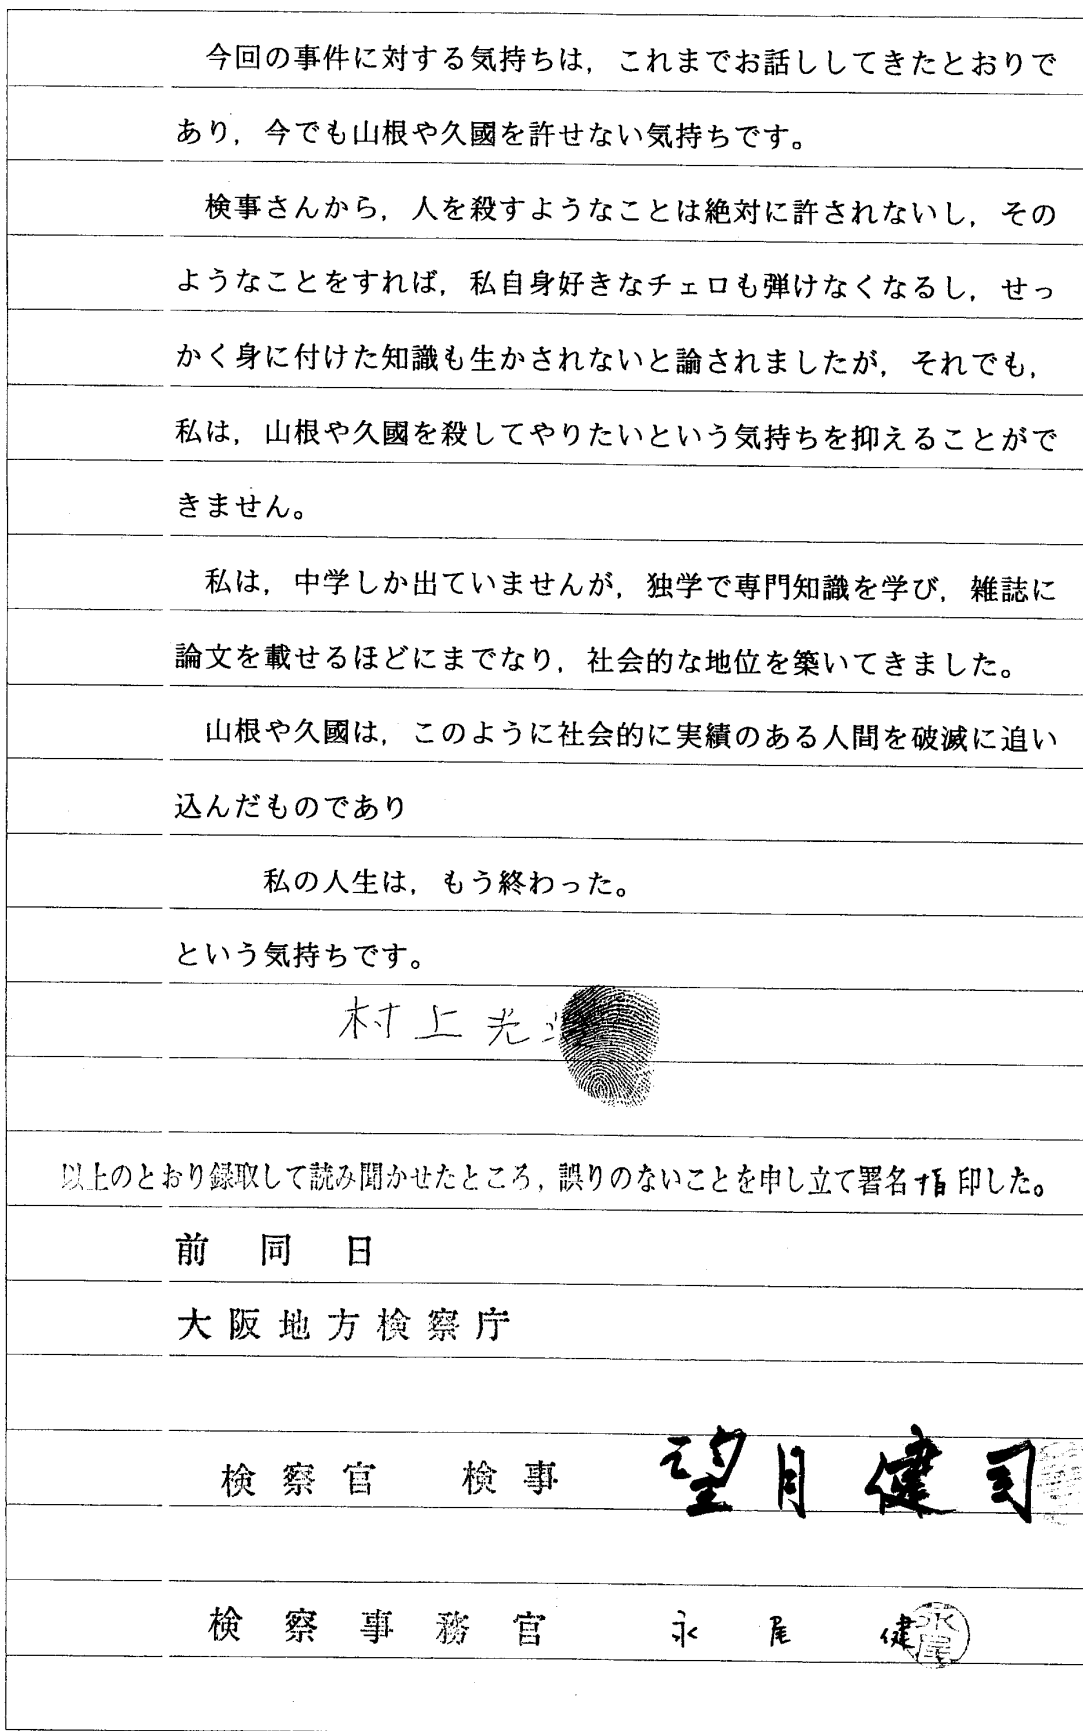 今回の事件に対する気持ちは，これまでお話ししてきたとおりで
あり，今でも山根や久國を許せない気持ちです。
検事さんから，人を殺すようなことは絶対に許されないし，その
ようなことをすれば，私自身好きなチェロも弾けなくなるし，せっ
かく身に付けた知識も生かされないと諭されましたが，それでも，
私は，山根や久國を殺してやりたいという気持ちを抑えることがで
きません。
私は，中学しか出ていませんが，独学で専門知識を学び，雑誌に
論文を載せるほどにまでなり，社会的な地位を築いてきました。
山根や久國は，このように社会的に実績のある人間を破滅に追い
込んだものであり
私の人生は，もう終わった。
という気持ちです。
村上光
以上のとおり録取して読み聞かせたところ，誤りのないことを申し立て署名指印した。
前同日
大阪地方検察庁
検察官 検事 望月健司
検察事務官 永尾健
永尾